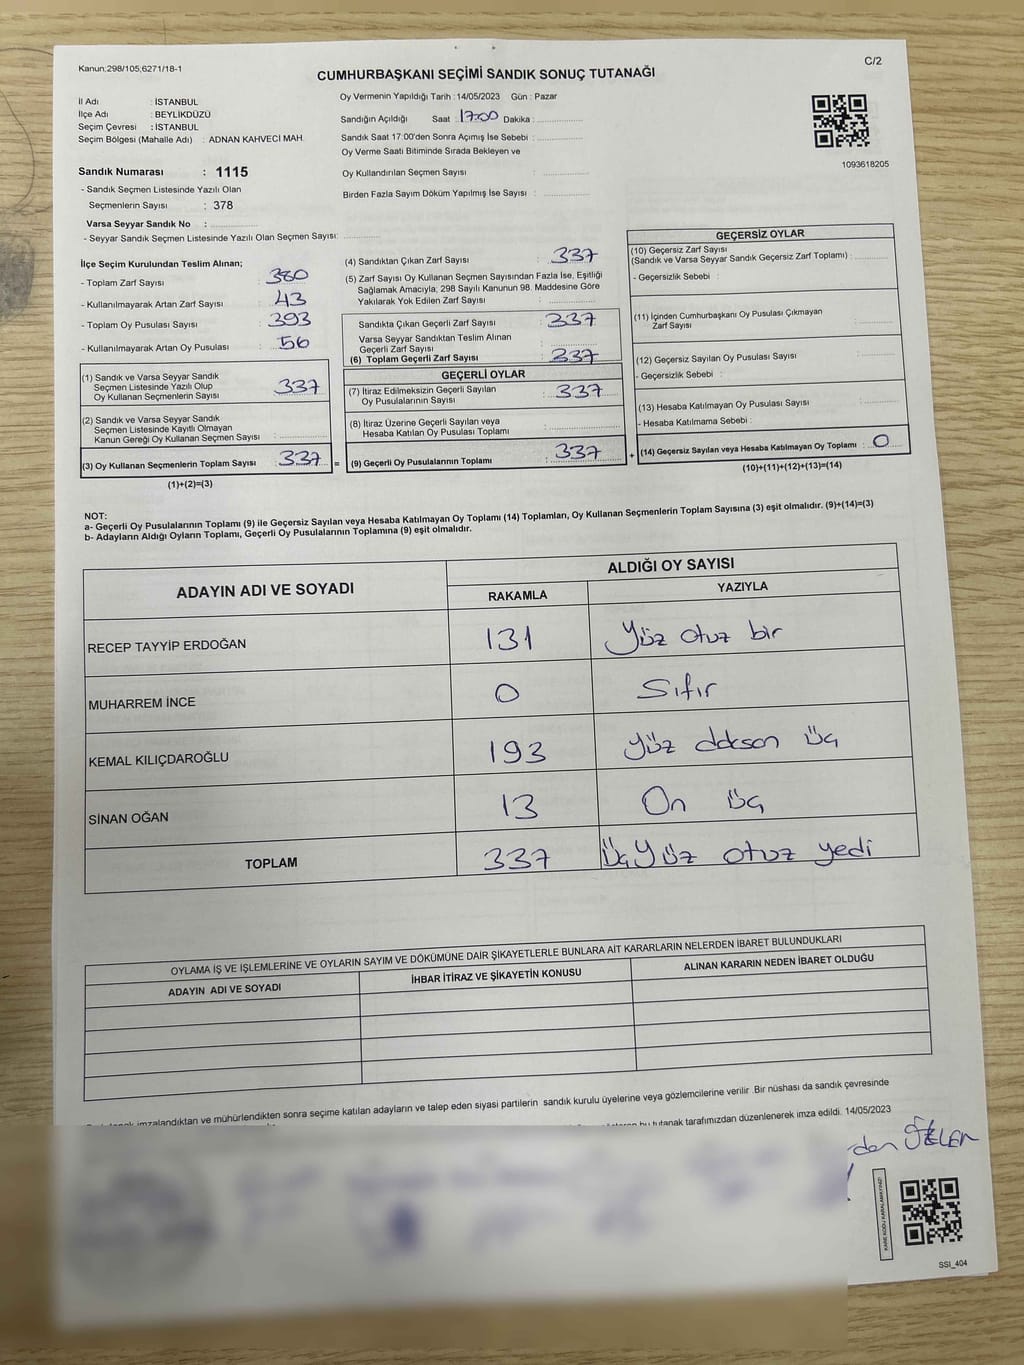 Kanun:298/105;6271/18-1
C/2
CUMHURBAŞKANI SEÇİMİ SANDIK SONUÇ TUTANAĞI
İl Adı : İSTANBUL
İlçe Adı : BEYLİKDÜZÜ
Seçim Çevresi : İSTANBUL
Seçim Bölgesi (Mahalle Adı) : ADNAN KAHVECİ MAH.
Oy Vermenin Yapıldığı Tarih :14/05/2023 Gün : Pazar
Sandığın Açıldığı Saat : 17:00 Dakika :
Sandık Saat 17:00'den Sonra Açımış İse Sebebi :
Oy Verme Saati Bitiminde Sırada Bekleyen ve
Oy Kullandırılan Seçmen Sayısı :
Birden Fazla Sayım Döküm Yapılmış İse Sayısı :
1093618205
Sandık Numarası : 1115
- Sandık Seçmen Listesinde Yazılı Olan
Seçmenlerin Sayısı : 378
Varsa Seyyar Sandık No :
- Seyyar Sandık Seçmen Listesinde Yazılı Olan Seçmen Sayısı:
İlçe Seçim Kurulundan Teslim Alınan;
- Toplam Zarf Sayısı : 380
- Kullanılmayarak Artan Zarf Sayısı : 43
- Toplam Oy Pusulası Sayısı : 393
- Kullanılmayarak Artan Oy Pusulası : 56
(1) Sandık ve Varsa Seyyar Sandık
Seçmen Listesinde Yazılı Olup
Oy Kullanan Seçmenlerin Sayısı : 337
(2) Sandık ve Varsa Seyyar Sandık
Seçmen Listesinde Kayıtlı Olmayan
Kanun Gereği Oy Kullanan Seçmen Sayısı :
(3) Oy Kullanan Seçmenlerin Toplam Sayısı : 337 =
(1)+(2)=(3)
(4) Sandıktan Çıkan Zarf Sayısı : 337
(5) Zarf Sayısı Oy Kullanan Seçmen Sayısından Fazla İse, Eşitliği
Sağlamak Amacıyla; 298 Sayılı Kanunun 98. Maddesine Göre
Yakılarak Yok Edilen Zarf Sayısı :
Sandıkta Çıkan Geçerli Zarf Sayısı : 337
Varsa Seyyar Sandıktan Teslim Alınan
Geçerli Zarf Sayısı :
(6) Toplam Geçerli Zarf Sayısı : 337
GEÇERLİ OYLAR
(7) İtiraz Edilmeksizin Geçerli Sayılan
Oy Pusulalarının Sayısı : 337
(8) İtiraz Üzerine Geçerli Sayılan veya
Hesaba Katılan Oy Pusulası Toplamı :
(9) Geçerli Oy Pusulalarının Toplamı : 337 +
GEÇERSİZ OYLAR
(10) Geçersiz Zarf Sayısı
(Sandık ve Varsa Seyyar Sandık Geçersiz Zarf Toplamı) :
- Geçersizlik Sebebi :
(11) İçinden Cumhurbaşkanı Oy Pusulası Çıkmayan
Zarf Sayısı :
(12) Geçersiz Sayılan Oy Pusulası Sayısı :
- Geçersizlik Sebebi :
(13) Hesaba Katılmayan Oy Pusulası Sayısı :
- Hesaba Katılmama Sebebi :
(14) Geçersiz Sayılan veya Hesaba Katılmayan Oy Toplamı : 0
(10)+(11)+(12)+(13)=(14)
NOT:
a- Geçerli Oy Pusulalarının Toplamı (9) ile Geçersiz Sayılan veya Hesaba Katılmayan Oy Toplamı (14) Toplamları, Oy Kullanan Seçmenlerin Toplam Sayısına (3) eşit olmalıdır. (9)+(14)=(3)
b- Adayların Aldığı Oyların Toplamı, Geçerli Oy Pusulalarının Toplamına (9) eşit olmalıdır.
ADAYIN ADI VE SOYADI
ALDIĞI OY SAYISI
RAKAMLA YAZIYLA
RECEP TAYYİP ERDOĞAN 131 Yüz otuz bir
MUHARREM İNCE 0 Sıfır
KEMAL KILIÇDAROĞLU 193 Yüz ddksan üç
SİNAN OĞAN 13 On üç
TOPLAM 337 ÜçYüz otuz yedi
OYLAMA İŞ VE İŞLEMLERİNE VE OYLARIN SAYIM VE DÖKÜMÜNE DAİR ŞİKAYETLERLE BUNLARA AİT KARARLARIN NELERDEN İBARET BULUNDUKLARI
ADAYIN ADI VE SOYADI İHBAR İTİRAZ VE ŞİKAYETİN KONUSU ALINAN KARARIN NEDEN İBARET OLDUĞU
imzalandıktan ve mühürlendikten sonra seçime katılan adayların ve talep eden siyasi partilerin sandık kurulu üyelerine veya gözlemcilerine verilir .Bir nüshası da sandık çevresinde
bu tutanak tarafımızdan düzenlenerek imza edildi. 14/05/2023
KARE KODU KARALAMAYINIZ!
SSI_404